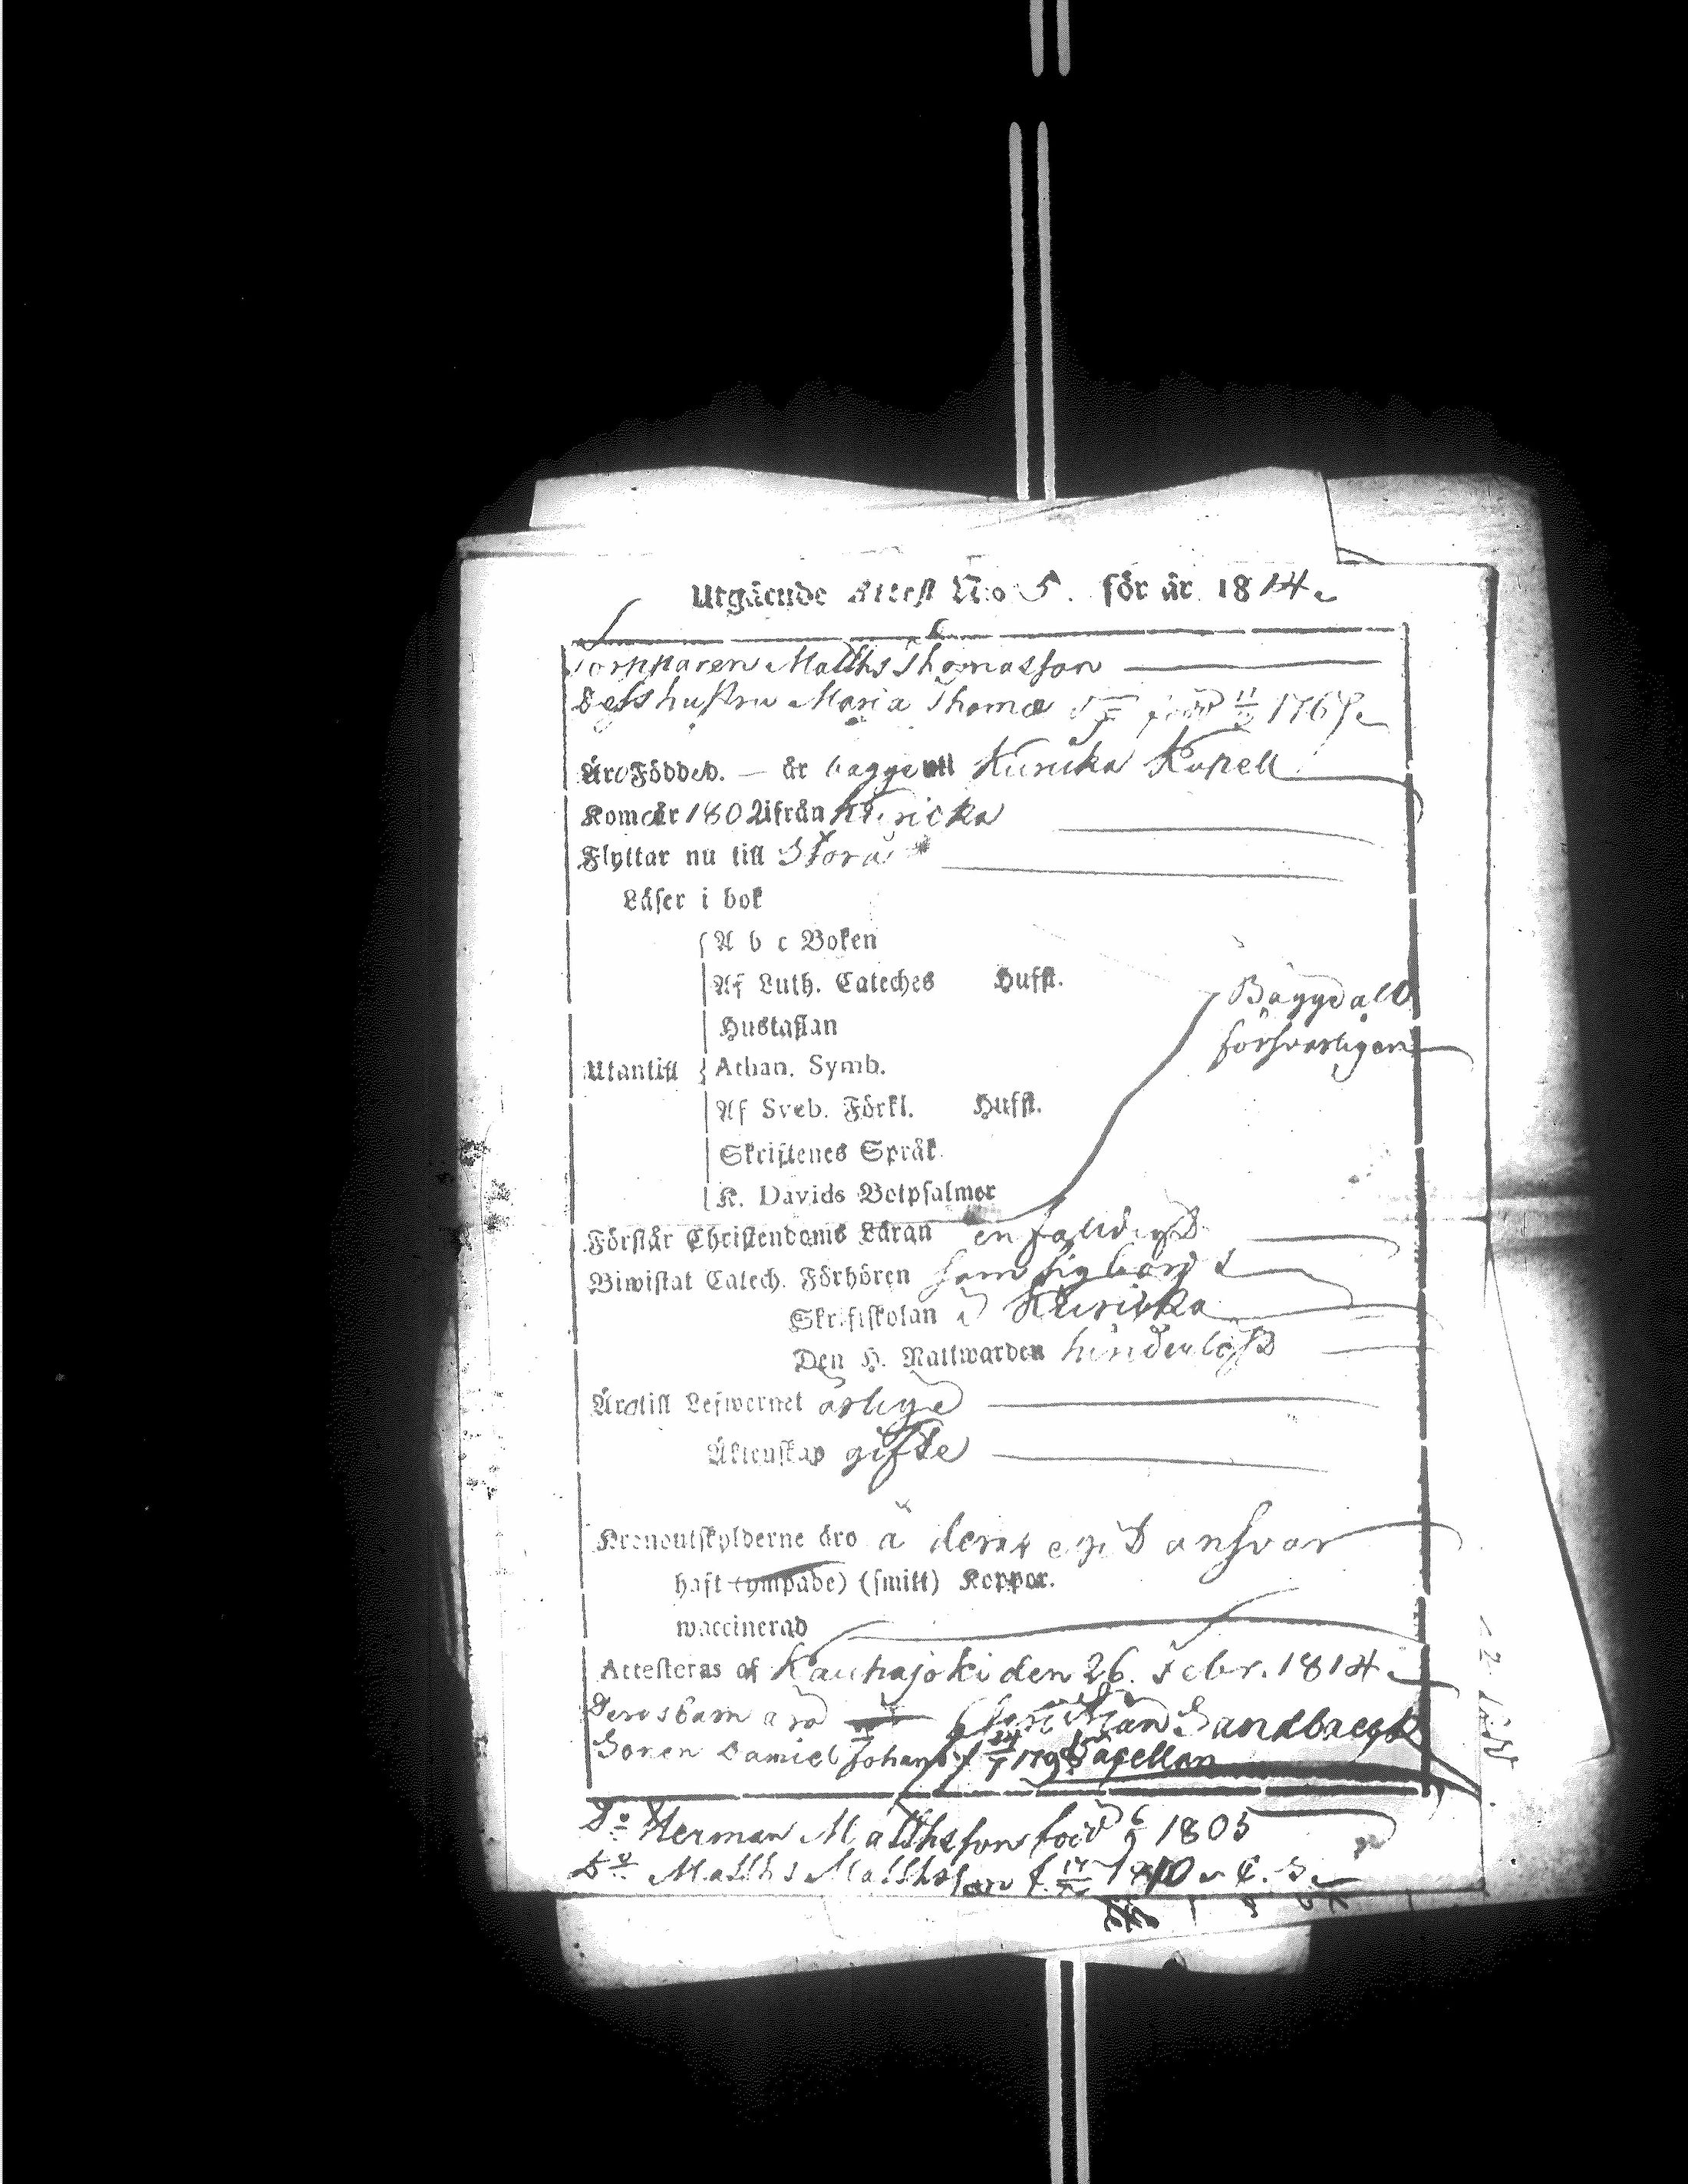 Utgående Attest No 5. för år 1814
Torpparen Matths Thomasson
Dess hustru Maria Thomæ född 11 1767
Äro Födde. — är bägge uti Kuricka Kapell
Kom år 1802 ifrån Kuricka
Flyttar nu till Storå
Läser i bok
A b c Boken
Af Luth. Cateches Hufst.
Bägge allt
försvarligen
Hustaflan
Utantill Athan. Symb.
Af Sveb. Förkl. Hufst.
Skriftenes Språk
K. Davids Botpsalmer
Förstår Christendoms Läran enfaldigt
Biwistat Catech. Förhören som sig bordt
Skriftskolan i Kuricka
Den H. Nattwarden hinderlöst
Äro till Lefwernet ärlige
Äktenskap gifte
Kronoutskylderne äro å deras eget ansvar
haft (ympade) (smitt) Koppor.
waccinerad
Attesteras af Kauhajoki den 26. Febr. 1814
Deras barn äro Christian Sandbaeck
Sonen Daniel Johan f. Capellan
Do Herman Matthsson född 6 1805
Do Matths Matthsson f. 1810